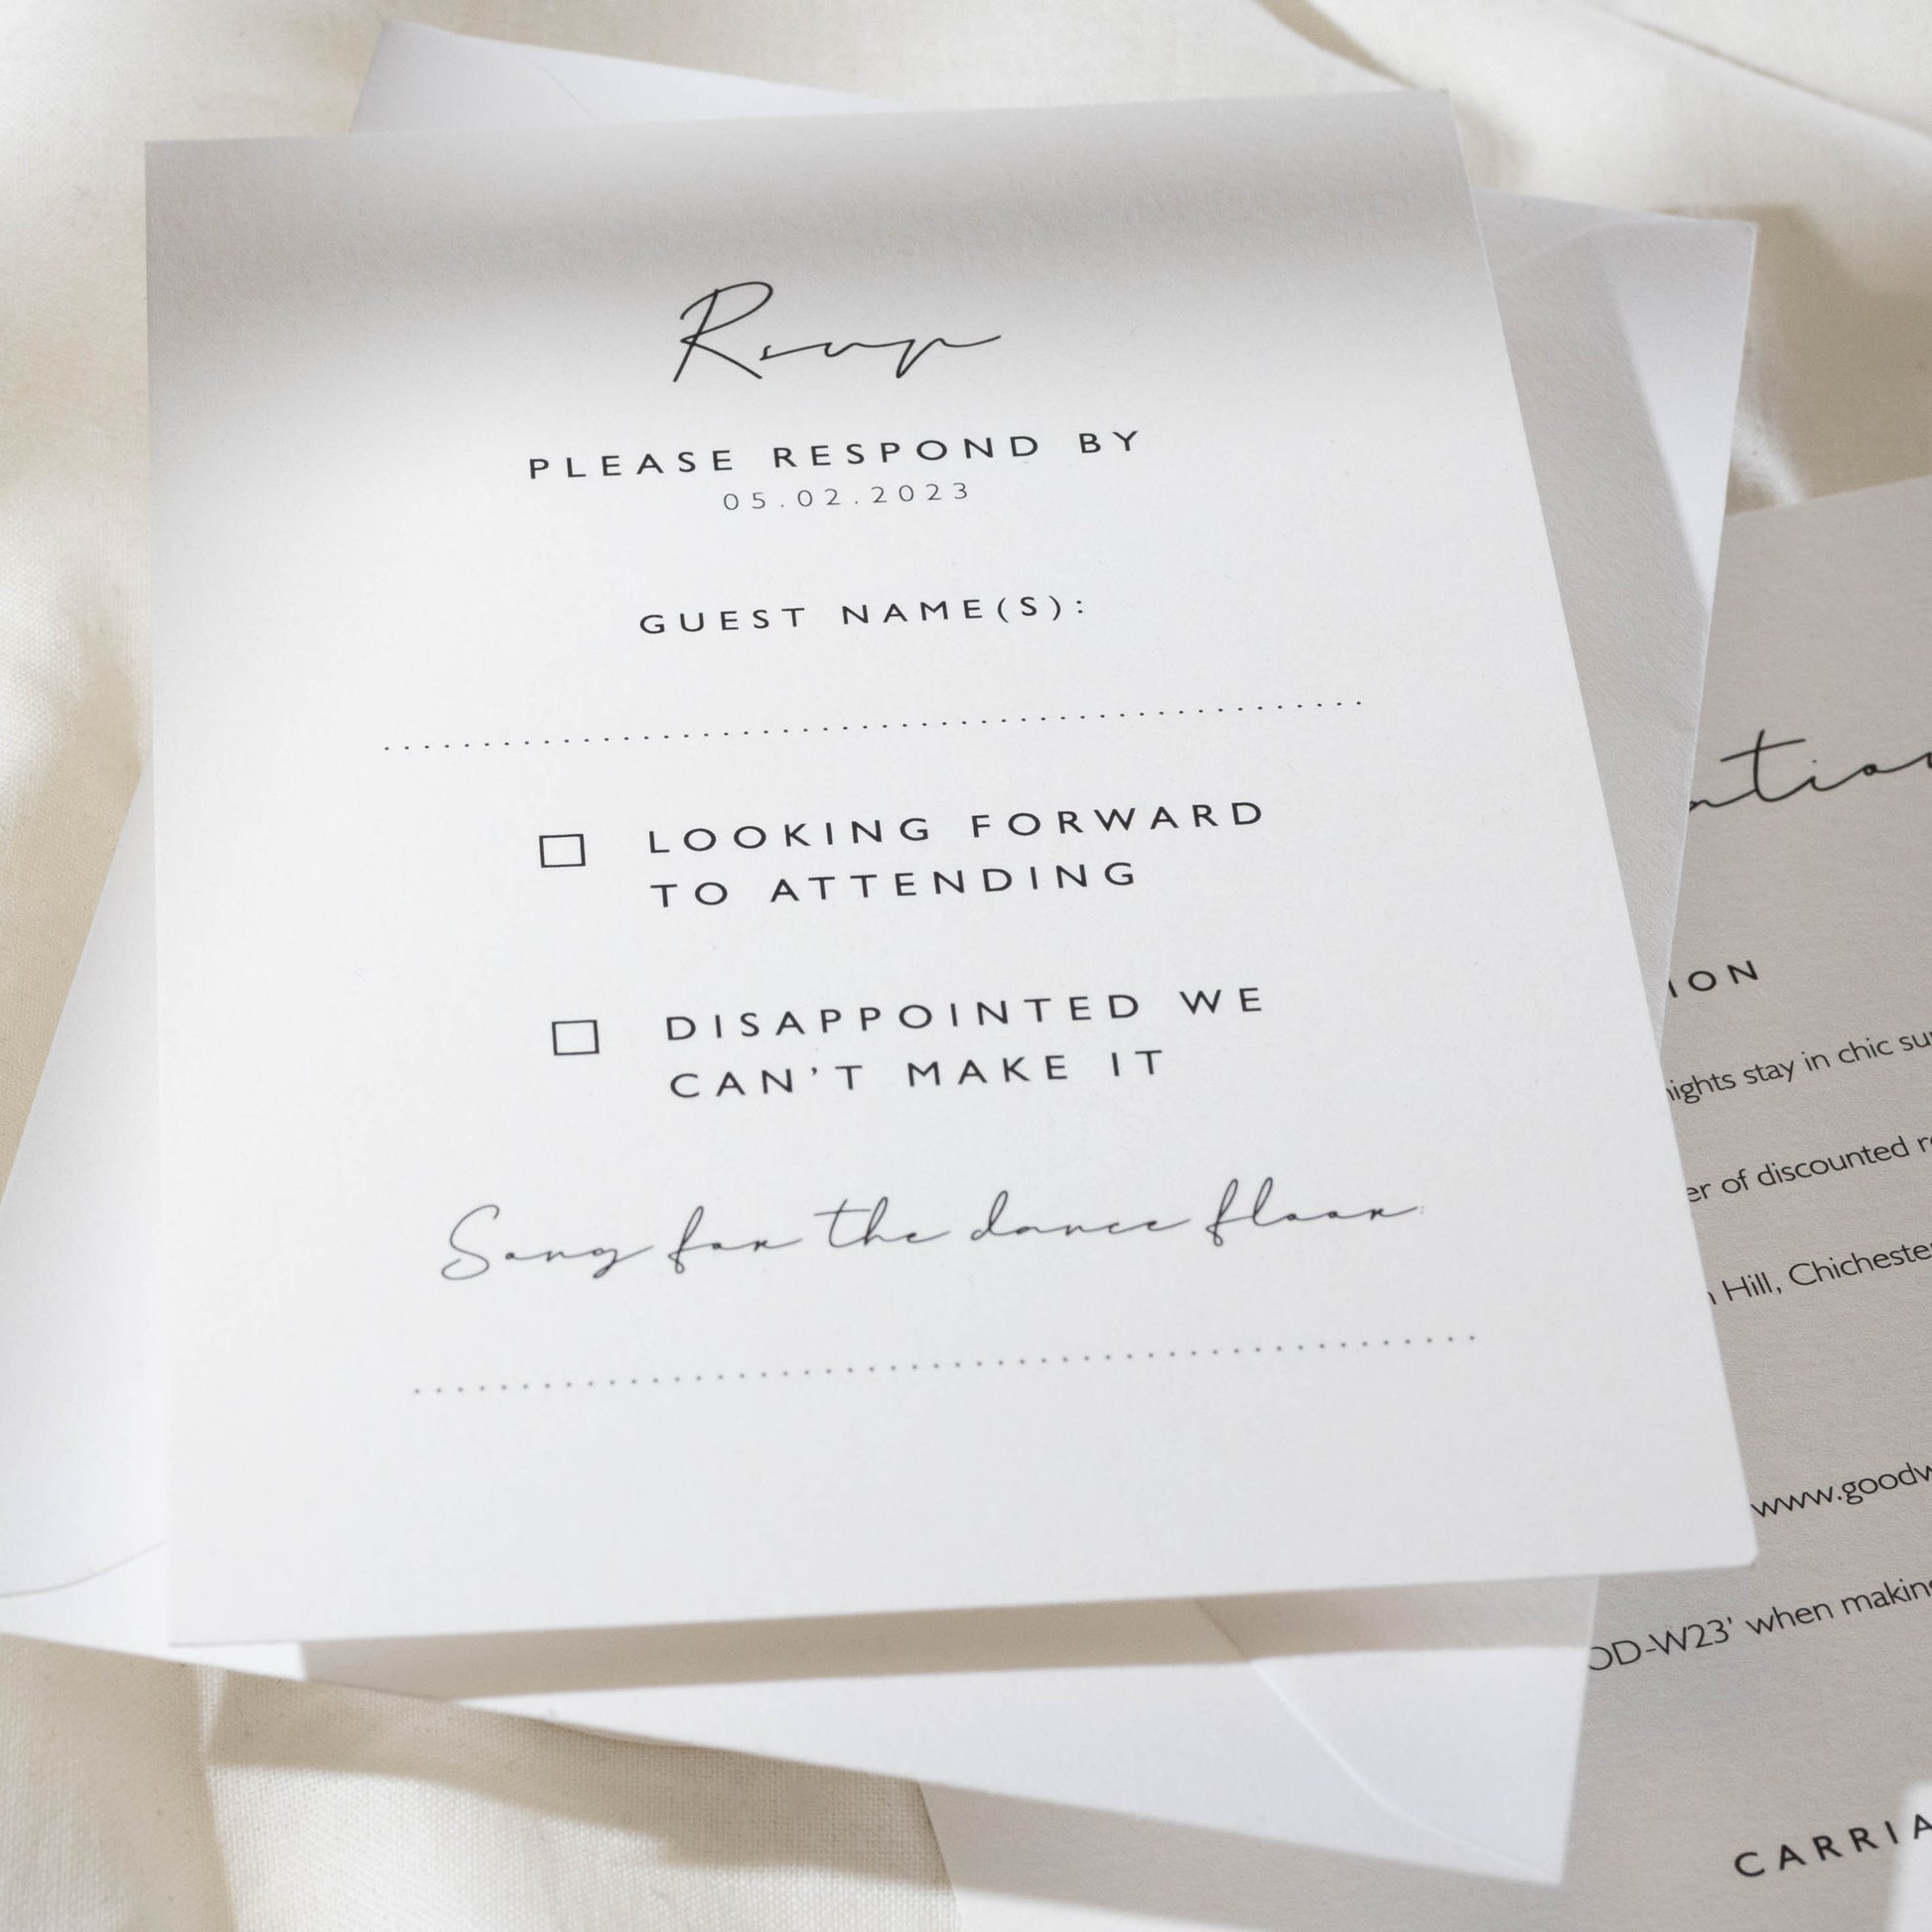 Rsvp
PLEASE RESPOND BY
05.02.2023
GUEST NAME(S):
LOOKING FORWARD
TO ATTENDING
DISAPPOINTED WE
CAN'T MAKE IT
Song for the dance floor:
ights stay in chic
of discounted
Hill, Chichester
www.goodw
OD-W23' when making
CARRIA